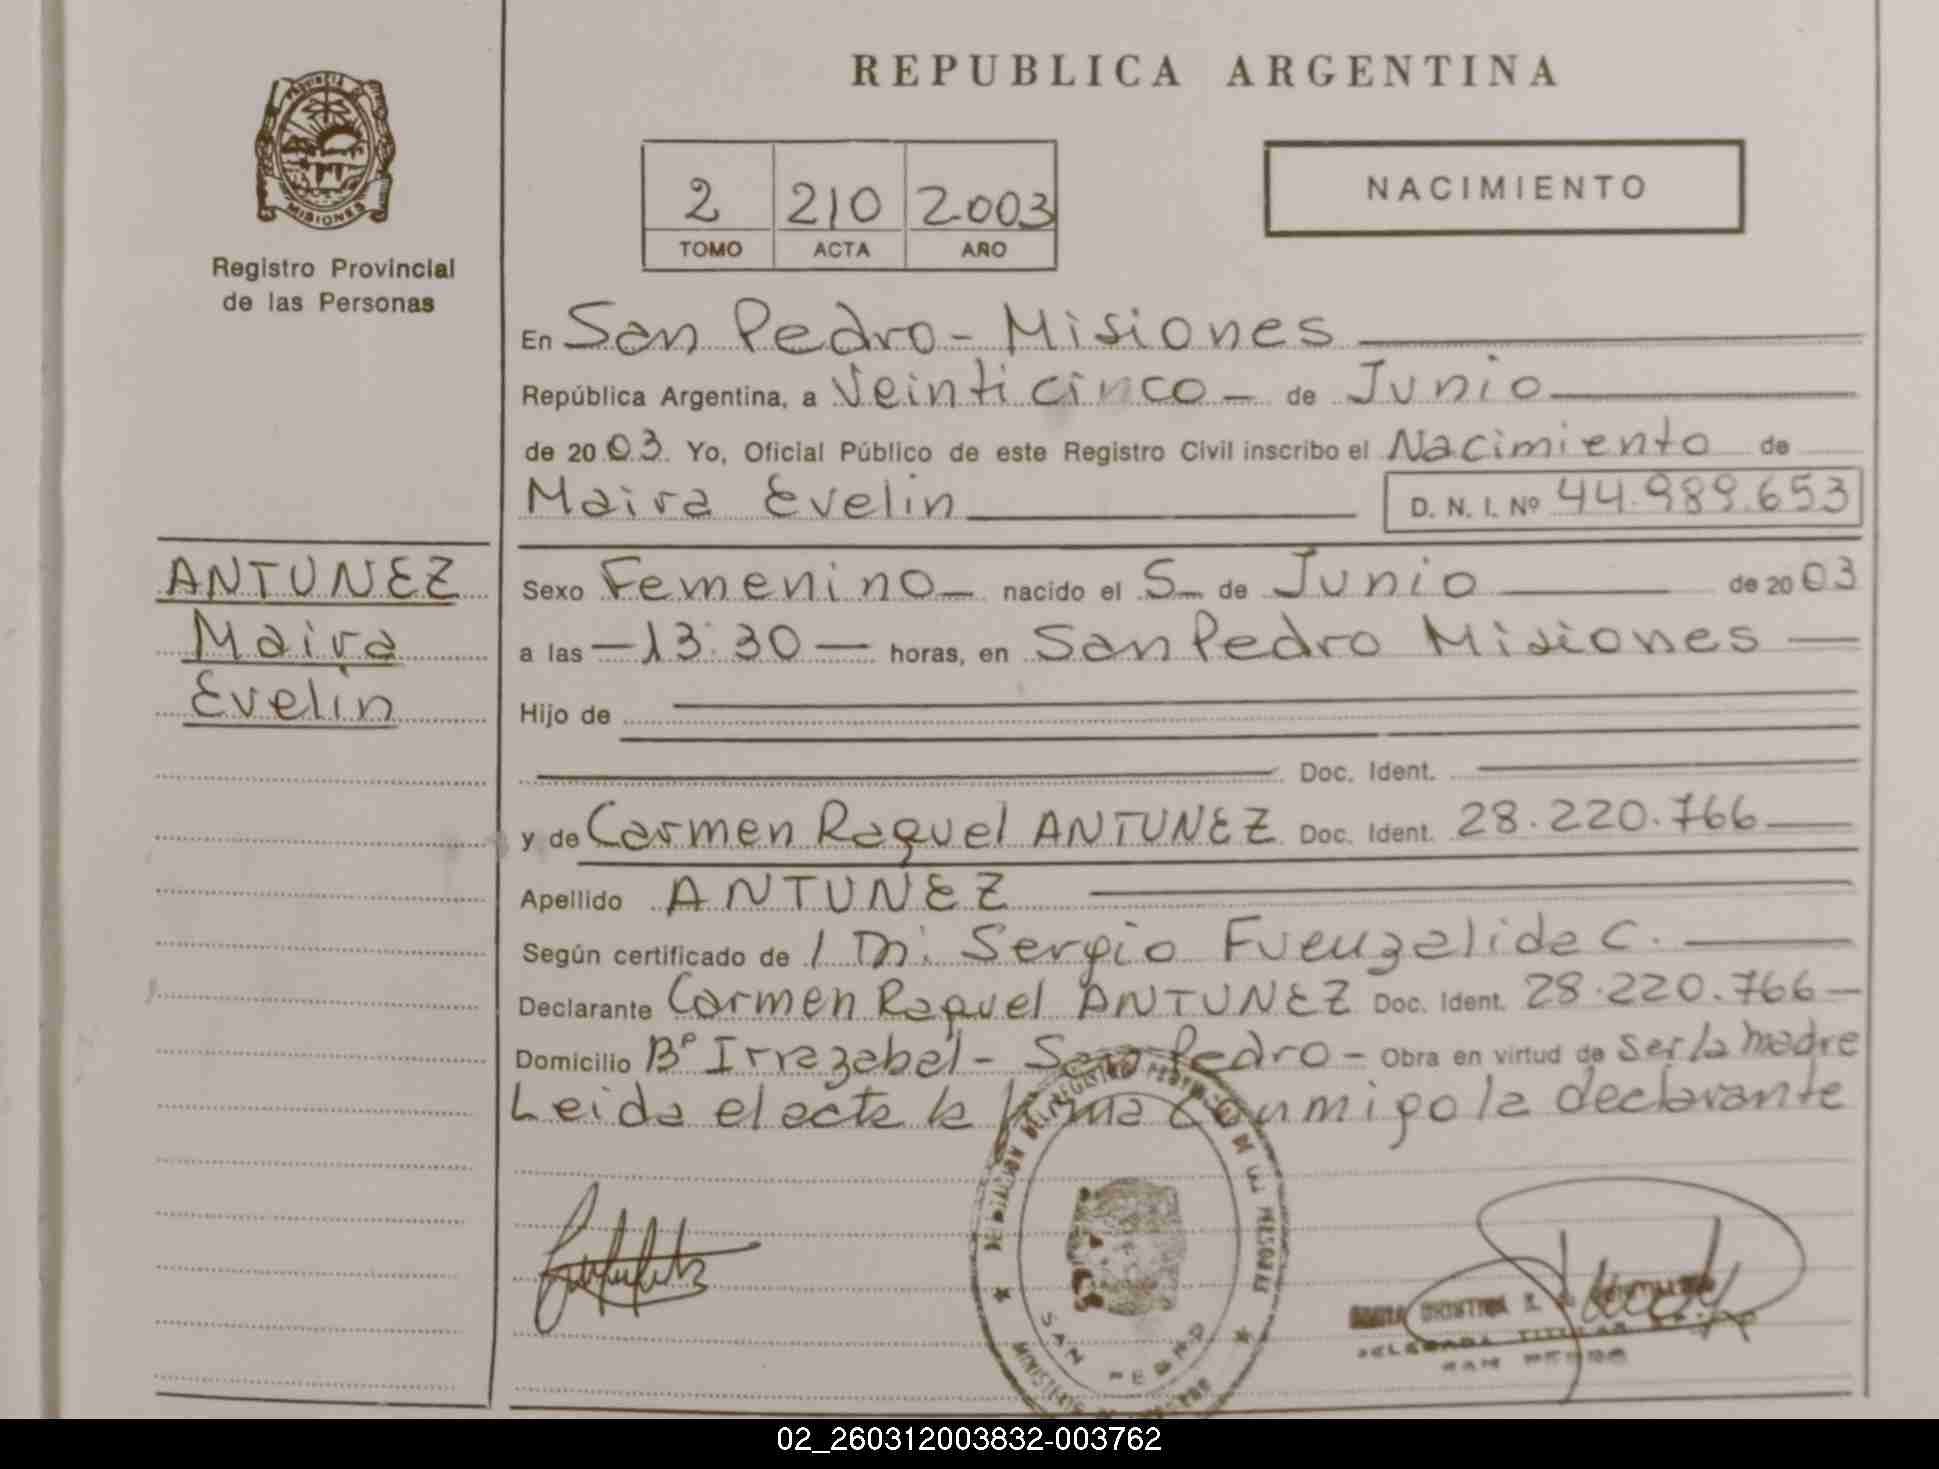 REPUBLICA ARGENTINA
PROVINCIA DE
MISIONES
Registro Provincial
de las Personas
2 210 2003
TOMO ACTA AÑO
NACIMIENTO
En San Pedro - Misiones
República Argentina, a Veinticinco - de Junio
de 2003. Yo, Oficial Público de este Registro Civil inscribo el Nacimiento de
Maira Evelin D. N. I. Nº 44.989.653
ANTUNEZ
Maira
Evelin
Sexo Femenino - nacido el 5 - de Junio de 2003
a las - 13:30 - horas, en San Pedro Misiones -
Hijo de
Doc. Ident.
y de Carmen Raquel ANTUNEZ Doc. Ident. 28.220.766
Apellido ANTUNEZ
Según certificado de Sergio Fuenzelida C.
Declarante Carmen Raquel ANTUNEZ Doc. Ident. 28.220.766 -
Domicilio Bº Irrazabal - San Pedro - Obra en virtud de ser la madre
Leida el acta la firma conmigo la declarante
DELEGACION DEL REGISTRO PROVINCIAL DE LAS PERSONAS
SAN PEDRO
DELEGADA TITULAR
SAN PEDRO
02_260312003832-003762